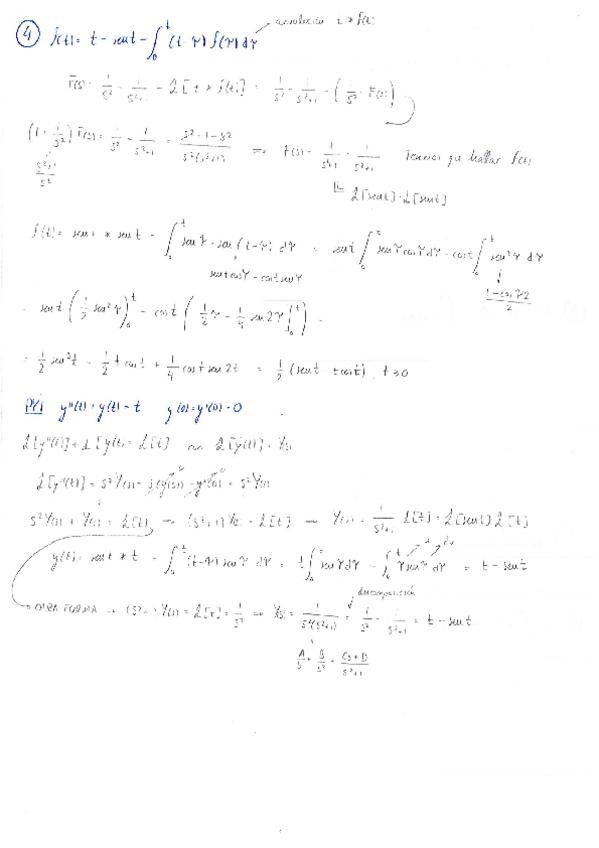 ④ f(t) = t - sent - ∫₀ᵗ (t-τ) f(τ) dτ
F(s) = 1/s² - 1/(s²+1) - L[t * f(t)] = 1/s² - 1/(s²+1) - (1/s² · F(s))
(1 + 1/s²) F(s) = 1/s² - 1/(s²+1) = (s²+1-s²)/(s²(s²+1)) ⇒ F(s) = 1/(s²+1) · 1/(s²+1) Tenemos que hallar f(t)
(s²+1)/s²
L[sent] · L[sent]
f(t) = sent * sent = ∫₀ᵗ senτ · sen(t-τ) dτ = sent ∫₀ᵗ senτ cosτ dτ - cost ∫₀ᵗ sen²τ dτ
sent cosτ - cost senτ
(1-cosτ2)/2
= sent (1/2 sen²τ)₀ᵗ - cost (1/2 τ - 1/4 sen2τ |₀ᵗ) =
= 1/2 sen³t - 1/2 t cost + 1/4 cost sen2t = 1/2 (sent - t cost), t≥0
PVI y''(t) + y(t) = t y(0) = y'(0) = 0
L[y''(t)] + L[y(t)] = L[t] L[y(t)] = Y(s)
L[y''(t)] = s² Y(s) - s y(0) - y'(0) = s² Y(s)
s² Y(s) + Y(s) = L[t] → (s²+1) Y(s) = L[t] → Y(s) = 1/(s²+1) L[t] = L[sent] L[t]
y(t) = sent * t = ∫₀ᵗ (t-τ) senτ dτ = t ∫₀ᵗ senτ dτ - ∫₀ᵗ τ senτ dτ = t - sent
descomposición
OTRA FORMA → (s²+1) Y(s) = L[t] = 1/s² ⇒ Y(s) = 1/(s²(s²+1)) = 1/s² - 1/(s²+1) = t - sent
A/s + B/s² + (Cs+D)/(s²+1)